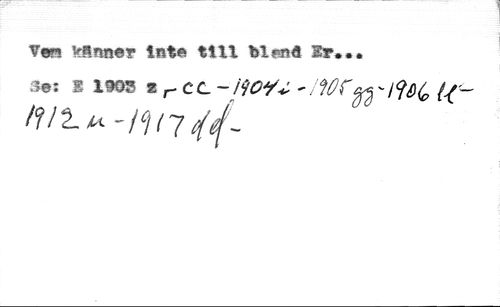 Vem känner inte till bland Er...
Se: E 1903 z, cc - 1904 i - 1905 gg - 1906 ll -
1912 u - 1917 dd -